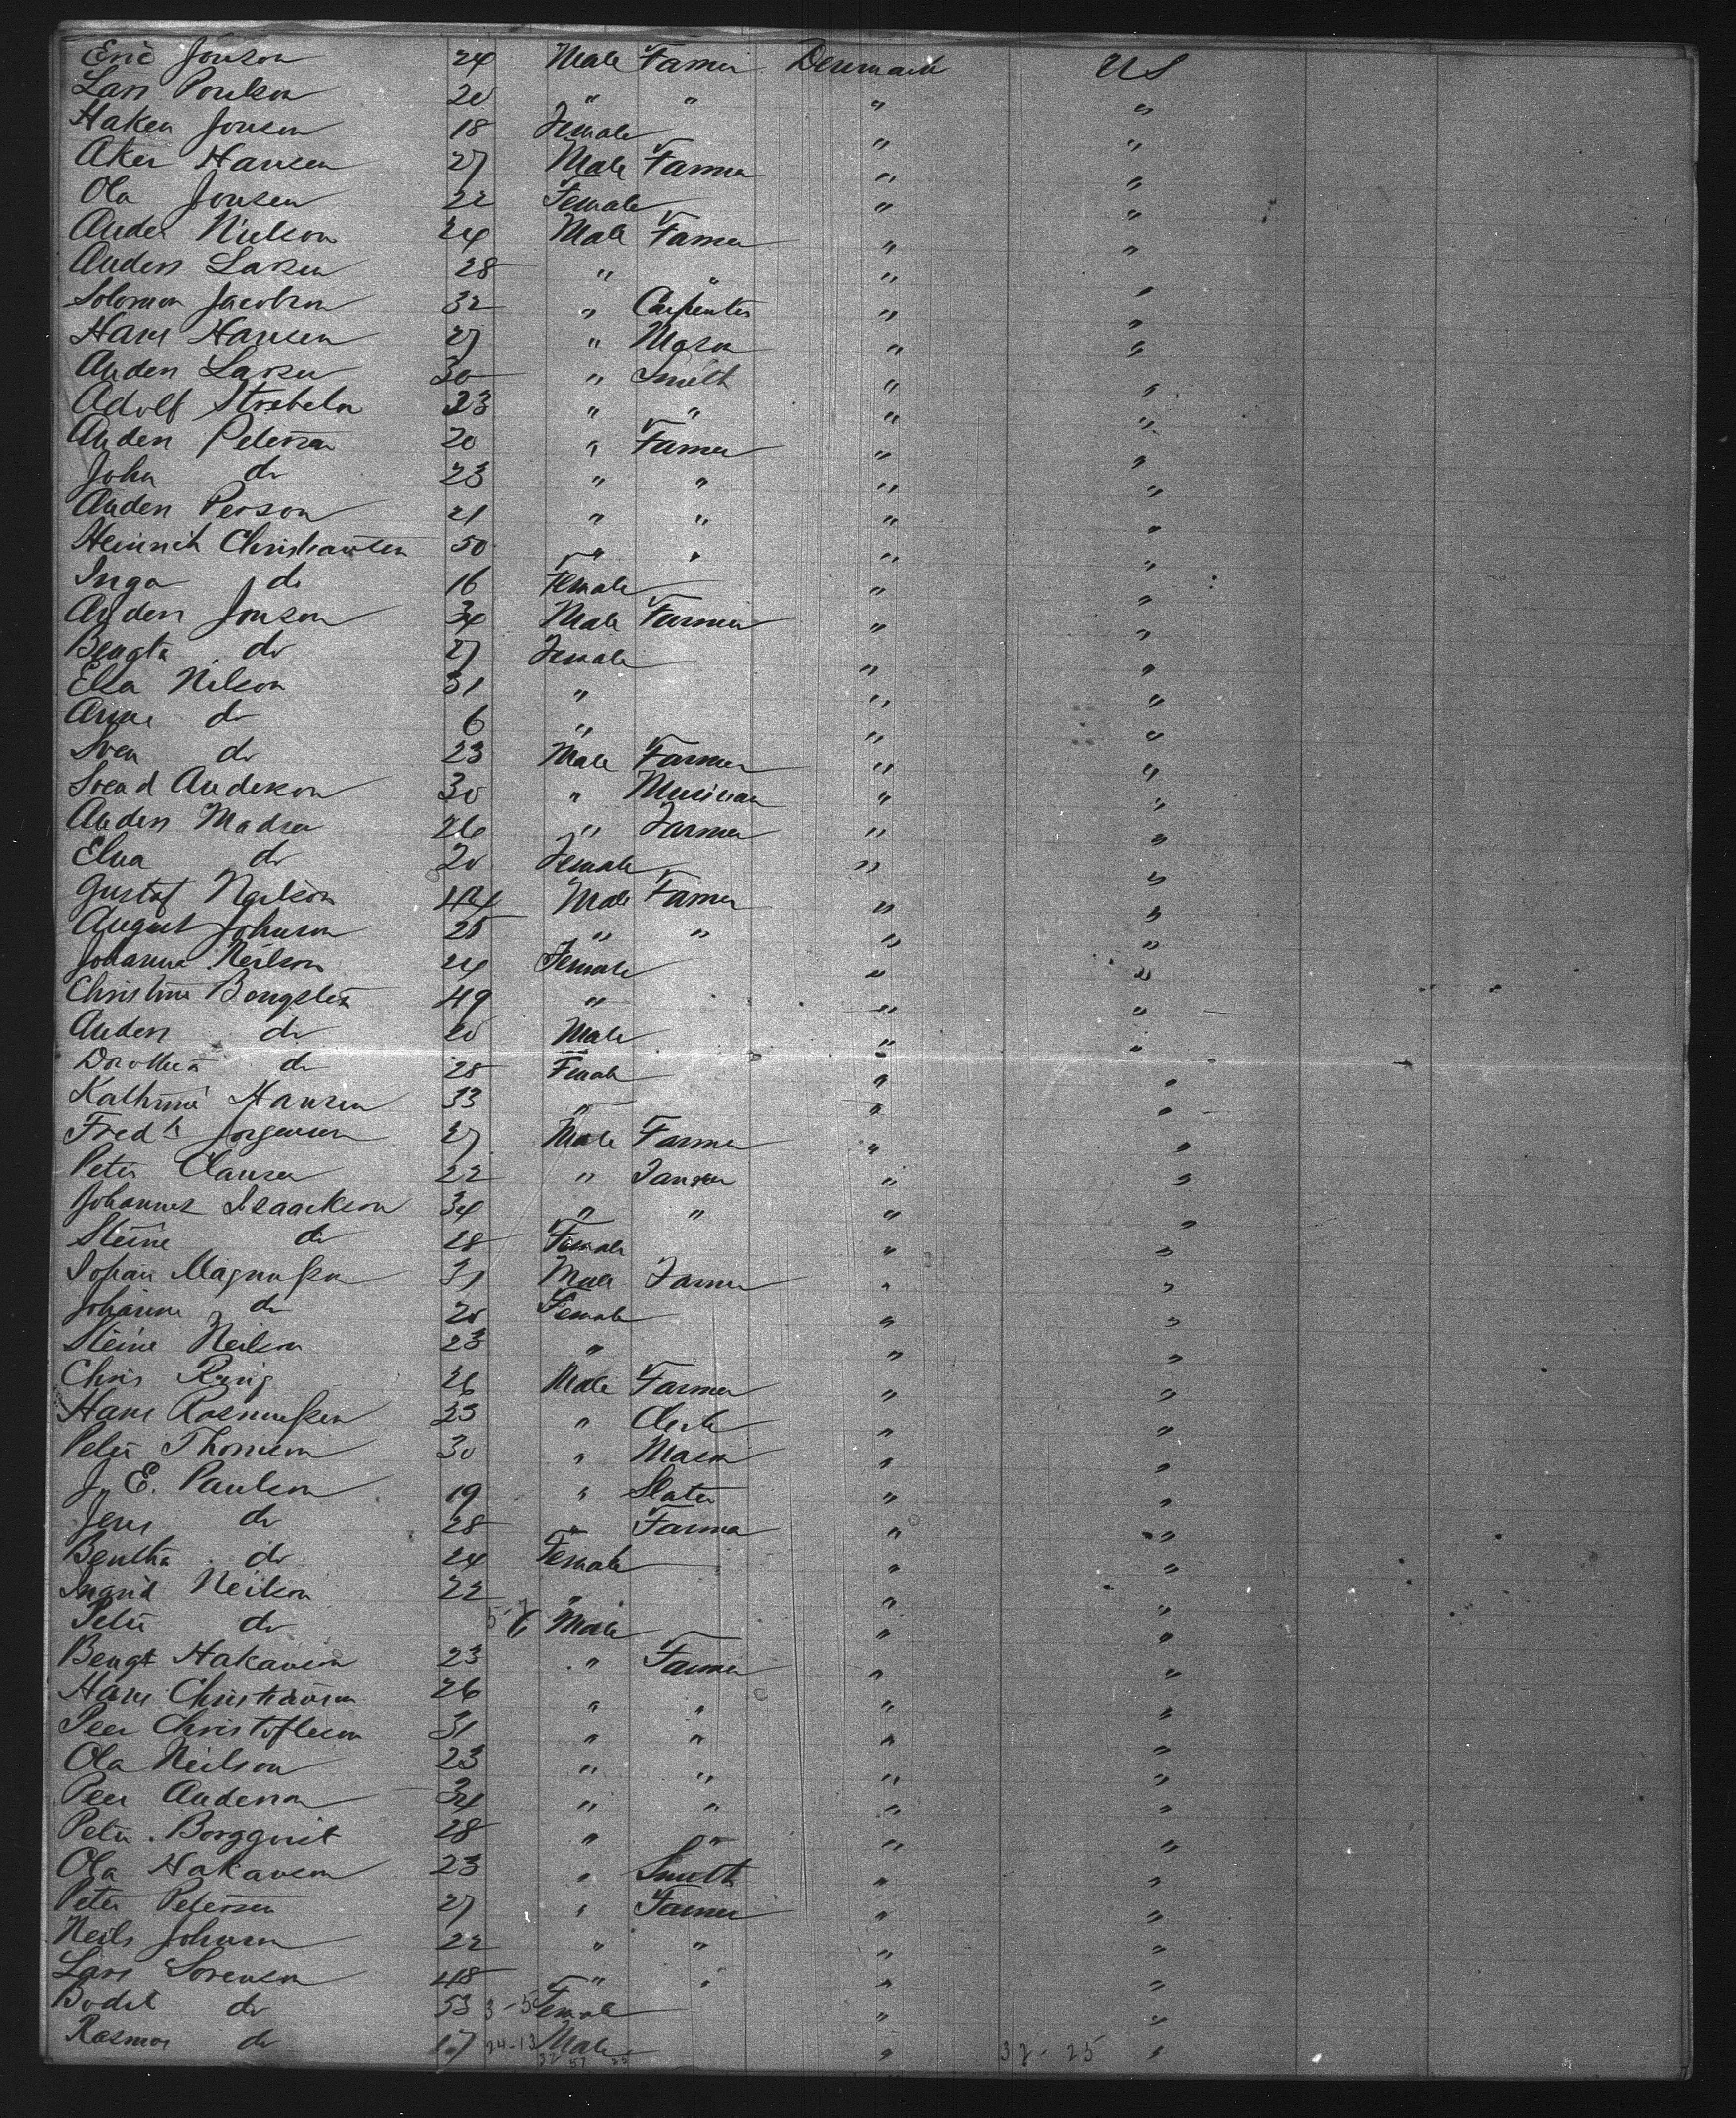 Eric Jonson 24 Male Farmer Denmark US
Lars Poulson 20 " " " "
Haken Jonson 18 Female " "
Aker Hansen 27 Male Farmer " "
Ola Jonsen 22 Female " "
Anders Nielson 24 Male Farmer " "
Anders Larsen 28 " " " "
Solomon Jacobson 32 " Carpenter " "
Hans Hansen 27 " Mason " "
Anders Larsen 30 " Smith " "
Adolf 23 " " " "
Anders Peterson 20 " Farmer " "
John do 23 " " " "
Anders Person 21 " " " "
Heinrich Christiansen 50 " " " "
Inga do 16 Female " "
Anders Jonson 34 Male Farmer " "
Bengta do 27 Female " "
Elsa Nilson 31 " " "
Anna do 6 " " "
Sven do 23 Male Farmer " "
Svend Anderson 30 " Musician " "
Anders Madsen 26 " Farmer " "
Elna do 20 Female " "
Gustof Neilson 44 Male Farmer " "
August Johnson 25 " " " "
Johanna Neilson 24 Female " "
Christine 49 " " "
Anders do 20 Male " "
Dorothea do 28 Female " "
Kathrine Hansen 33 " " "
Fredk Jorgensen 27 Male Farmer " "
Peter Clausen 22 " Farmer " "
Johannes Isaackson 34 " " " "
Steine do 28 Female " "
Johan Magnusson 31 Male Farmer " "
Johanne do 25 Female " "
Steine Neilson 23 " " "
Chris Ring 26 Male Farmer " "
Hans Rasmussen 23 " Clerk " "
Peter Thomson 30 " Mason " "
J. E. Paulson 19 " Slater " "
Jens do 28 " Farmer " "
Bentha do 24 Female " "
Ingrid Neilson 22 " " "
Peter do 6 Male " "
Bengt Hakanson 23 " Farmer " "
Hans Christianson 26 " " " "
Peer Christofferson 31 " " " "
Ola Neilson 23 " " " "
Peer Anderson 34 " " " "
Peter Borgquist 28 " " " "
Ola Hakanson 23 " Smith " "
Peter Petersen 27 " Farmer " "
Neils Johnson 22 " " " "
Lars Sorenson 48 " " " "
Bodil do 53 3-5 Female " "
Rasmus do 17 24-13 Male " 32-25 "
32 57 25